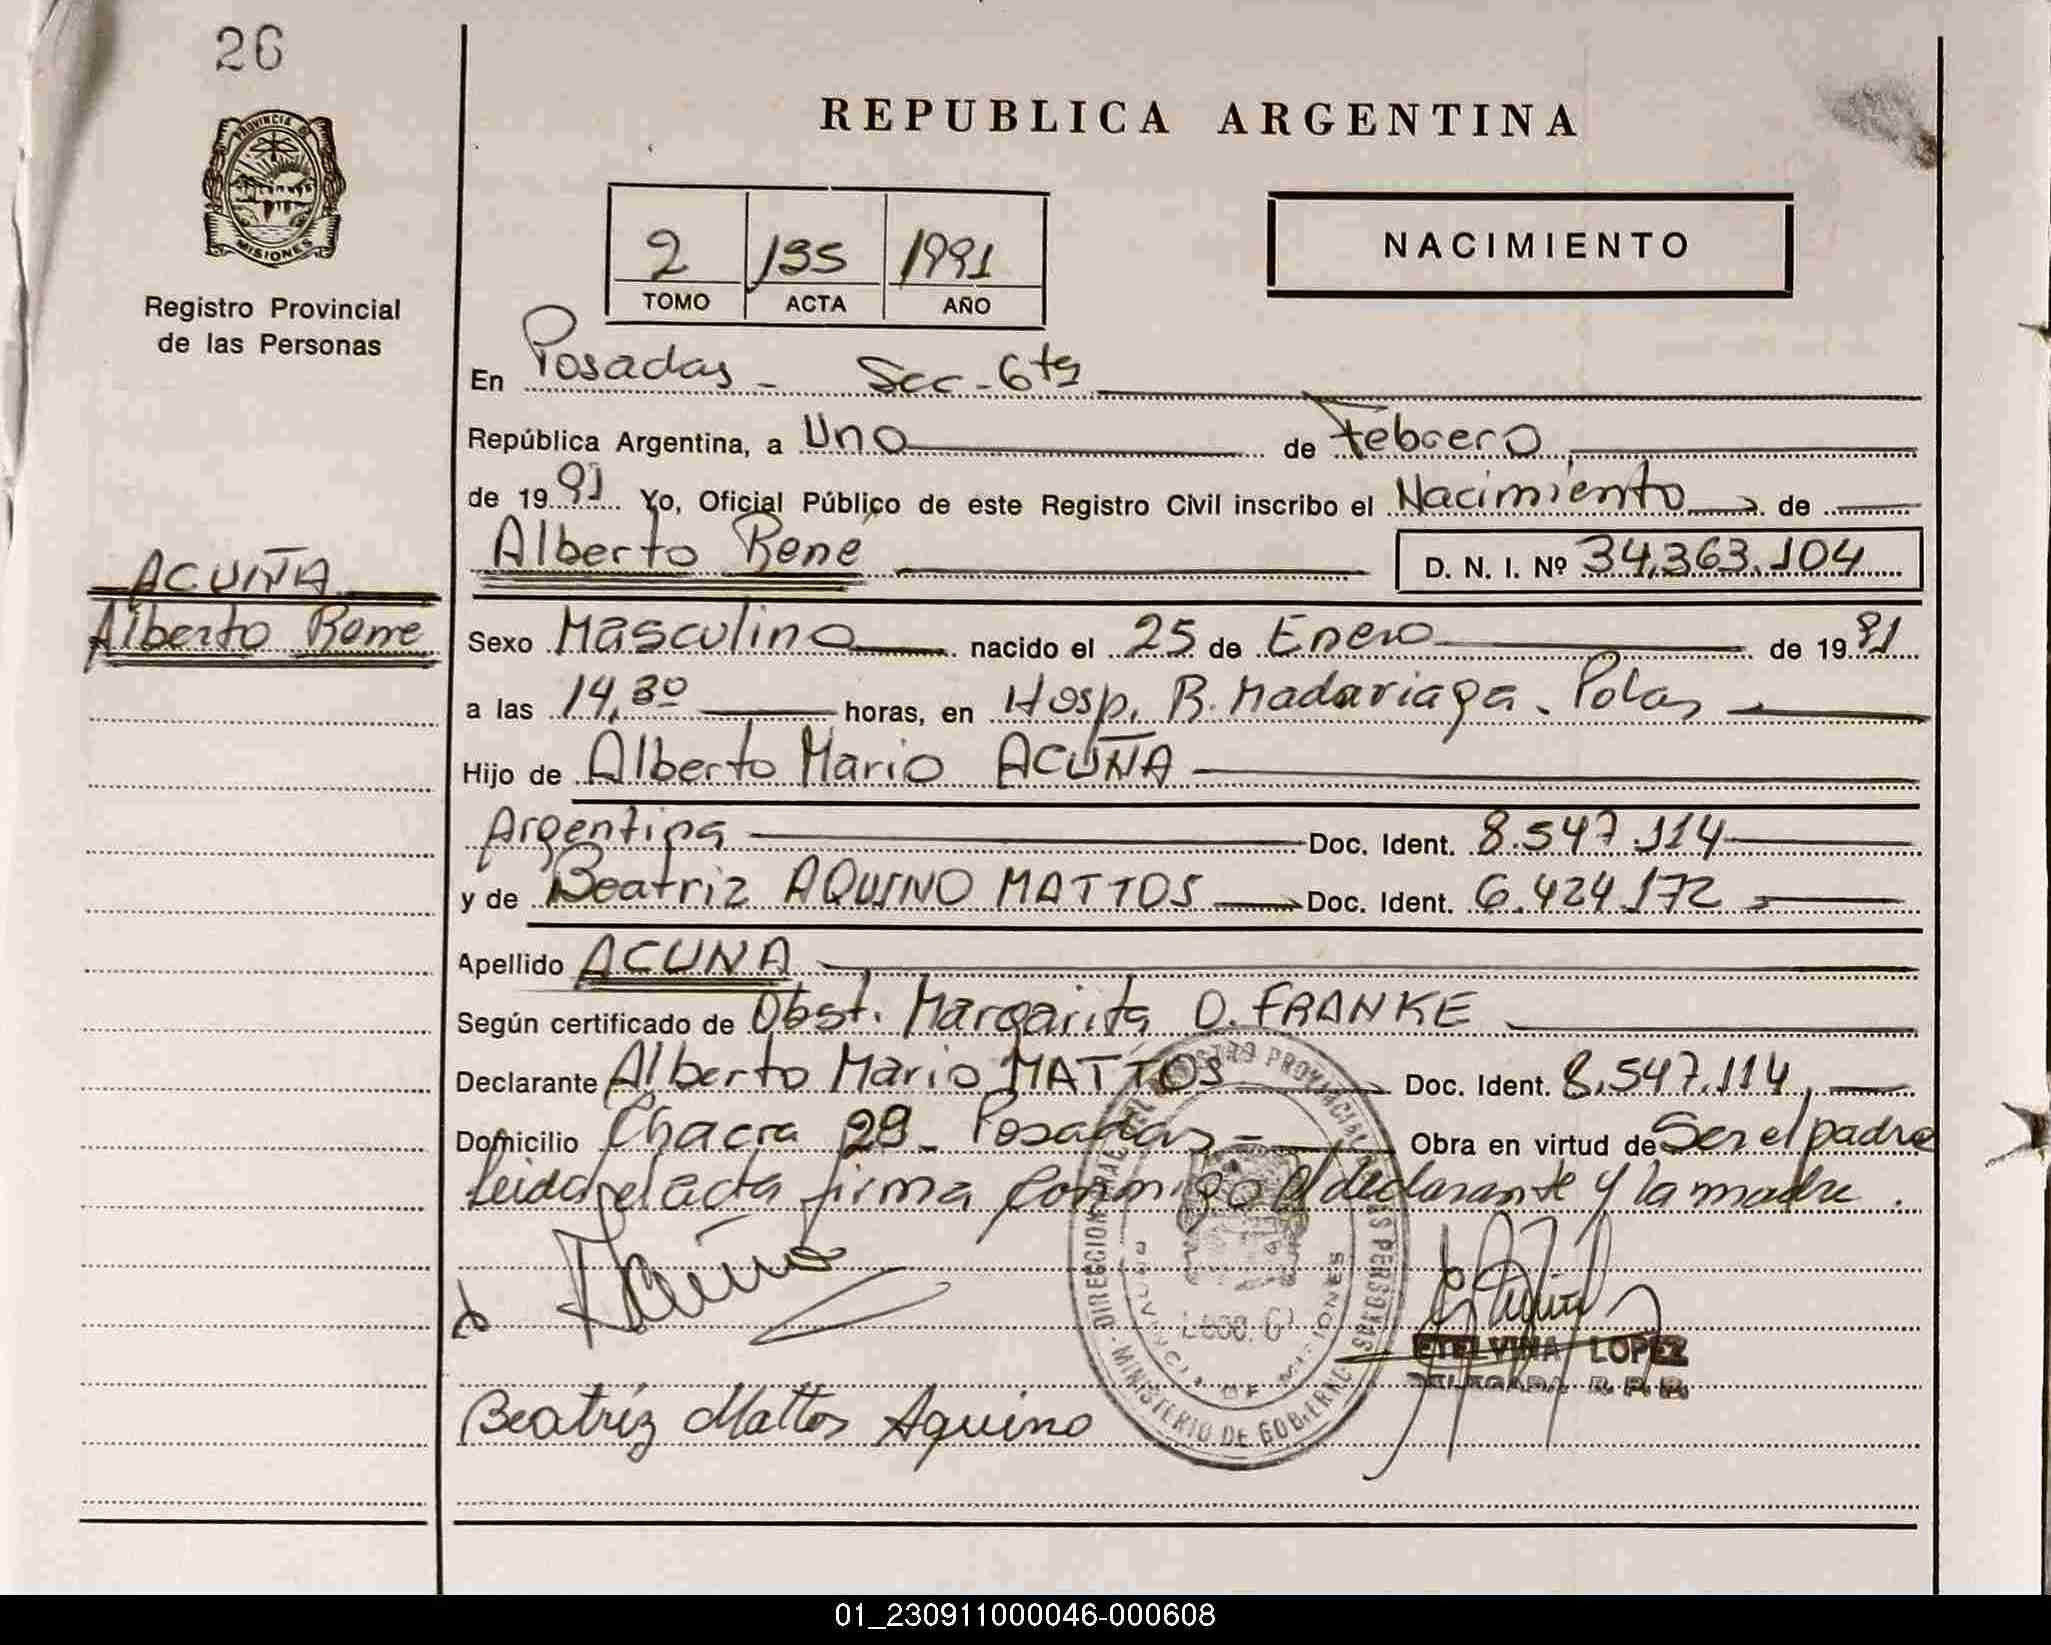 26
REPUBLICA ARGENTINA
PROVINCIA DE
MISIONES
Registro Provincial
de las Personas
2 195 1991
TOMO ACTA AÑO
NACIMIENTO
En Posadas - Sec - 6ta
República Argentina, a Uno de Febrero
de 1991 Yo, Oficial Público de este Registro Civil inscribo el Nacimiento de
Alberto Rene D. N. I. Nº 34.363.104
ACUÑA
Alberto Rene
Sexo Masculino nacido el 25 de Enero de 1991
a las 14,30 horas, en Hosp. R. Madariaga - Pdas
Hijo de Alberto Mario ACUÑA
Argentina Doc. Ident. 8.547.114
y de Beatriz AQUINO MATTOS Doc. Ident. 6.424.172
Apellido ACUNA
Según certificado de Obst. Margarita O. FRANKE
Declarante Alberto Mario MATTOS Doc. Ident. 8.547.114
Domicilio Chacra 29 - Posadas - Obra en virtud de Ser el padre
Leida el acta firma conmigo el declarante y la madre.
Acuña
DIRECCION REGISTRO PROVINCIAL DE LAS PERSONAS
MINISTERIO DE GOBIERNO
PROVINCIA DE MISIONES
ETELVINA LOPEZ
DELEGADA R. P. P.
Beatriz Mattos Aquino
01_230911000046-000608